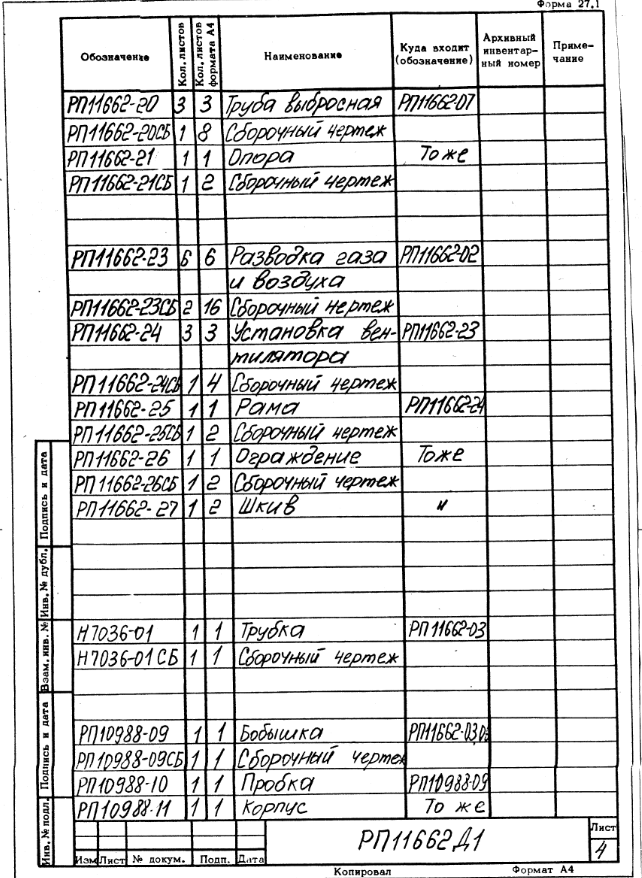 Форма 27.1
Обозначение Кол. листов Кол. листов формата А4 Наименование Куда входит (обозначение) Архивный инвентарный номер Примечание
РП11662-20 3 3 Труба выбросная РП11662-07
РП11662-20СБ 1 8 Сборочный чертеж
РП11662-21 1 1 Опора То же
РП11662-21СБ 1 2 Сборочный чертеж
РП11662-23 6 6 Разводка газа РП11662-02
и воздуха
РП11662-23СБ 2 16 Сборочный чертеж
РП11662-24 3 3 Установка вен- РП11662-23
тилятора
РП11662-24СБ 1 4 Сборочный чертеж
РП11662-25 1 1 Рама РП11662-24
РП11662-25СБ 1 2 Сборочный чертеж
РП11662-26 1 1 Ограждение То же
РП11662-26СБ 1 2 Сборочный чертеж
РП11662-27 1 2 Шкив "
Н7036-01 1 1 Трубка РП11662-03
Н7036-01 СБ 1 1 Сборочный чертеж
РП10988-09 1 1 Бобышка РП11662-03,
РП10988-09СБ 1 1 Сборочный чертеж
РП10988-10 1 1 Пробка РП10988-09
РП10988-11 1 1 Корпус То же
Подпись и дата
Инв. № дубл.
Взам. инв. №
Подпись и дата
Инв. № подл.
РП11662Д1
Лист
4
Изм Лист № докум. Подп. Дата
Копировал Формат А4